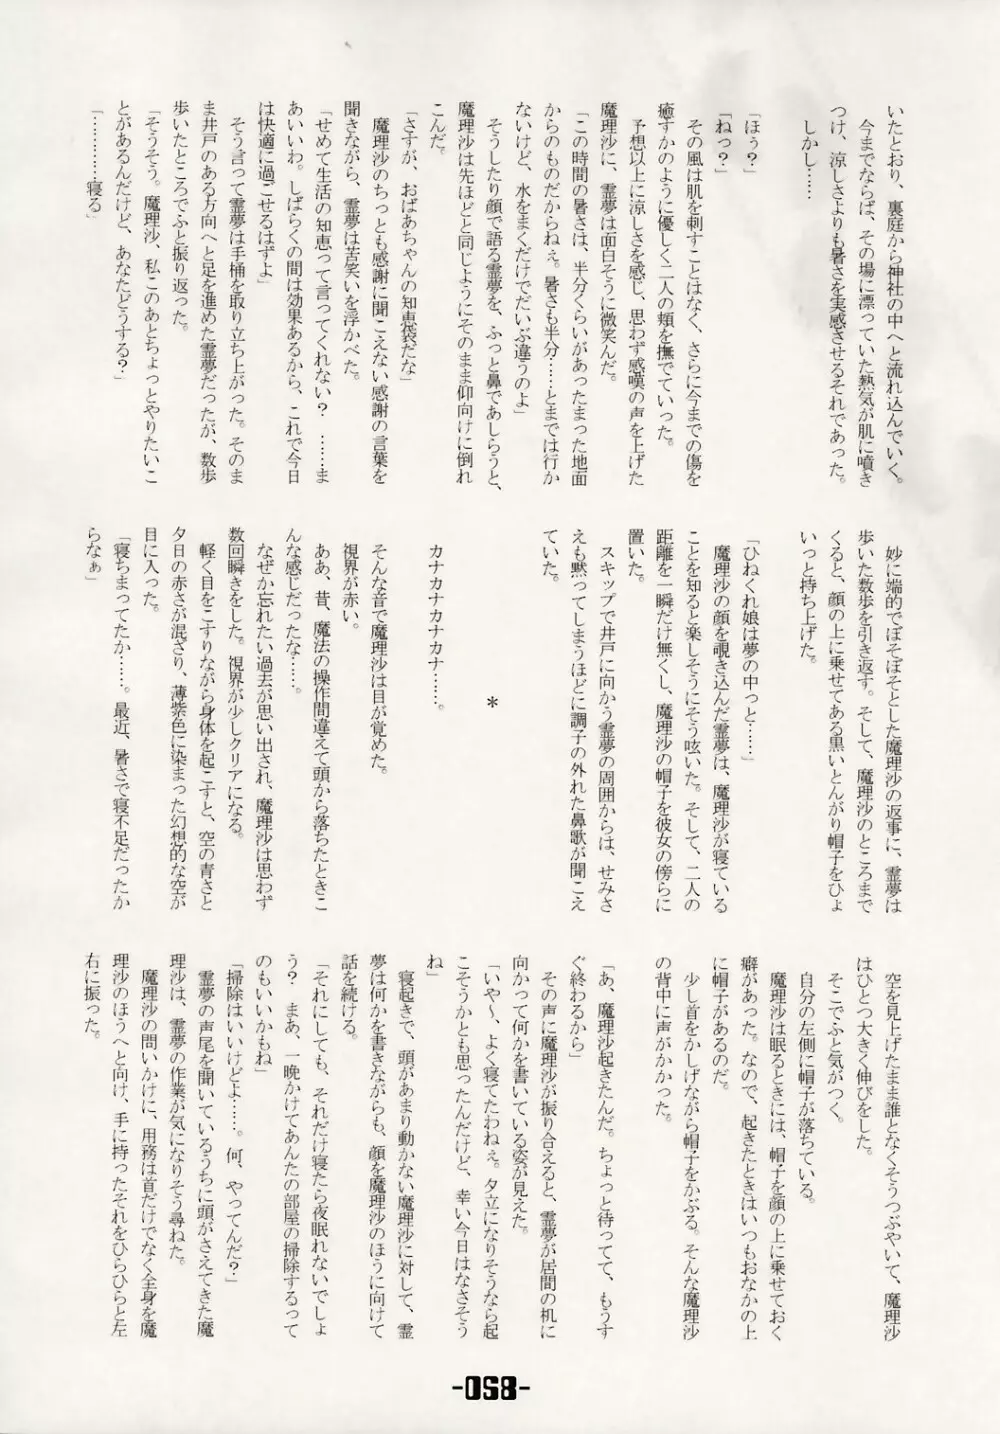 いたとおり、裏庭から神社の中へと流れ込んでいく。
　今までならば、その場に漂っていた熱気が肌に噴き
つけ、涼しさよりも暑さを実感させるそれであった。
　しかし……
「ほぅ？」
「ねっ？」
　その風は肌を刺すことはなく、さらに今までの傷を
癒すかのように優しく二人の頬を撫でていった。
　予想以上に涼しさを感じ、思わず感嘆の声を上げた
魔理沙に、霊夢は面白そうに微笑んだ。
「この時間の暑さは、半分くらいがあったまった地面
からのものだからねぇ。暑さも半分……とまでは行か
ないけど、水をまくだけでだいぶ違うのよ」
　そうしたり顔で語る霊夢を、ふっと鼻であしらうと、
魔理沙は先ほどと同じようにそのまま仰向けに倒れ
こんだ。
「さすが、おばあちゃんの知恵袋だな」
　魔理沙のちっとも感謝に聞こえない感謝の言葉を
聞きながら、霊夢は苦笑いを浮かべた。
「せめて生活の知恵って言ってくれない？　……ま
あいいわ。しばらくの間は効果あるから、これで今日
は快適に過ごせるはずよ」
　そう言って霊夢は手桶を取り立ち上がった。そのま
ま井戸のある方向へと足を進めた霊夢だったが、数歩
歩いたところでふと振り返った。
「そうそう。魔理沙、私このあとちょっとやりたいこ
とがあるんだけど、あなたどうする？」
「…………寝る」
　妙に端的でぼそぼそとした魔理沙の返事に、霊夢は
歩いた数歩を引き返す。そして、魔理沙のところまで
くると、顔の上に乗せてある黒いとんがり帽子をひょ
いっと持ち上げた。
「ひねくれ娘は夢の中っと……」
　魔理沙の顔を覗き込んだ霊夢は、魔理沙が寝ている
ことを知ると楽しそうにそう呟いた。そして、二人の
距離を一瞬だけ無くし、魔理沙の帽子を彼女の傍らに
置いた。
　スキップで井戸に向かう霊夢の周囲からは、せみさ
えも黙ってしまうほどに調子の外れた鼻歌が聞こえ
ていた。
＊
カナカナカナカナ……。
　そんな音で魔理沙は目が覚めた。
視界が赤い。
　ああ、昔、魔法の操作間違えて頭から落ちたときこ
んな感じだったな……。
　なぜか忘れたい過去が思い出され、魔理沙は思わず
数回瞬きをした。視界が少しクリアになる。
　軽く目をこすりながら身体を起こすと、空の青さと
夕日の赤さが混ざり、薄紫色に染まった幻想的な空が
目に入った。
「寝ちまってたか……。最近、暑さで寝不足だったか
らなぁ」
　空を見上げたまま誰となくそうつぶやいて、魔理沙
はひとつ大きく伸びをした。
　そこでふと気がつく。
　自分の左側に帽子が落ちている。
　魔理沙は眠るときには、帽子を顔の上に乗せておく
癖があった。なので、起きたときはいつもおなかの上
に帽子があるのだ。
　少し首をかしげながら帽子をかぶる。そんな魔理沙
の背中に声がかかった。
「あ、魔理沙起きたんだ。ちょっと待ってて、もうす
ぐ終わるから」
　その声に魔理沙が振り合えると、霊夢が居間の机に
向かって何かを書いている姿が見えた。
「いや～、よく寝てたわねぇ。夕立になりそうなら起
こそうかとも思ったんだけど、幸い今日はなさそう
ね」
　寝起きで、頭があまり動かない魔理沙に対して、霊
夢は何かを書きながらも、顔を魔理沙のほうに向けて
話を続ける。
「それにしても、それだけ寝たら夜眠れないでしょ
う？　まあ、一晩かけてあんたの部屋の掃除するって
のもいいかもね」
「掃除はいいけどよ……。何、やってんだ？」
　霊夢の声尾を聞いているうちに頭がさえてきた魔
理沙は、霊夢の作業が気になりそう尋ねた。
　魔理沙の問いかけに、用務は首だけでなく全身を魔
理沙のほうへと向け、手に持ったそれをひらひらと左
右に振った。
-058-